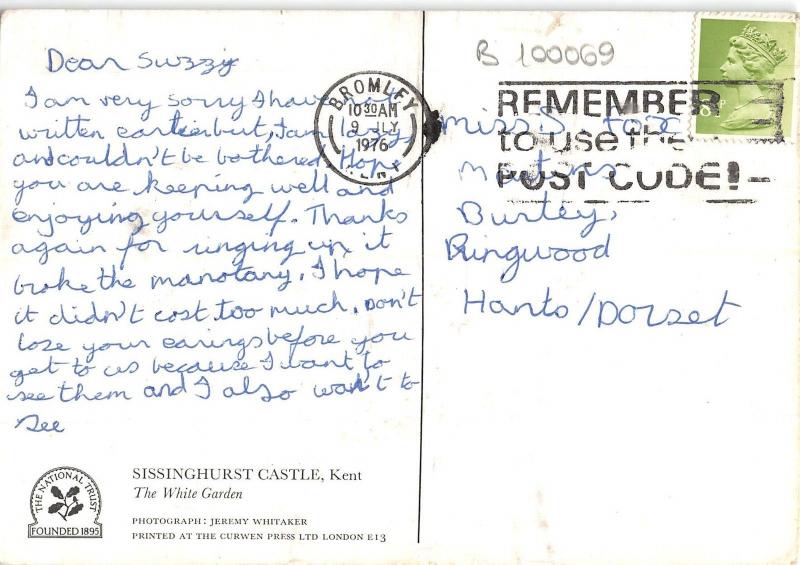 Dear Suzzy
I am very sorry I have
written earlier but, I am lazy
and couldn't be bothered. Hope
you are keeping well and
enjoying yourself. Thanks
again for ringing up it
broke the manotany. I hope
it didn't cost too much. Don't
lose your earings before you
get to us because I want to
see them and I also want to
see
SISSINGHURST CASTLE, Kent
The White Garden
PHOTOGRAPH: JEREMY WHITAKER
PRINTED AT THE CURWEN PRESS LTD LONDON E13
THE NATIONAL TRUST
FOUNDED 1895
B 100069
BROMLEY
10 30 AM
9 JLY
1976
KENT
REMEMBER
to use the
POST CODE!
Miss S Fox
Burley,
Ringwood
Hants/Dorset